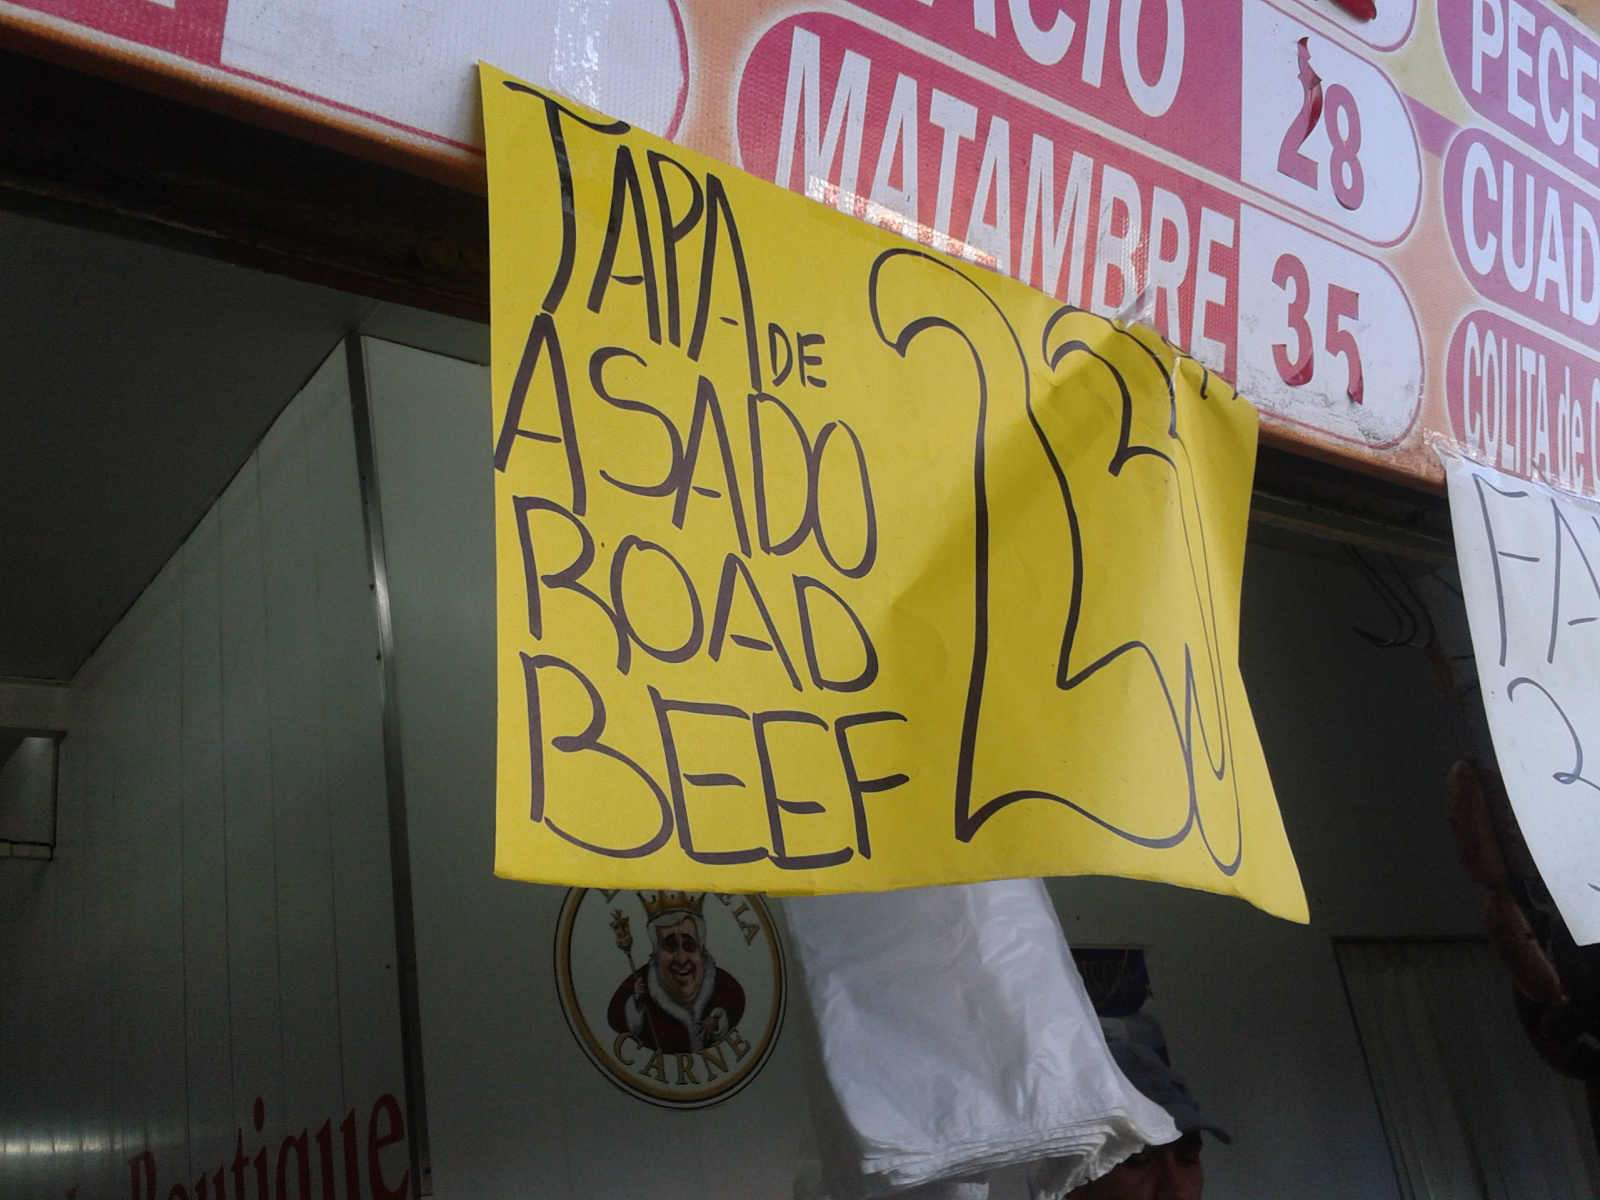 MATAMBRE 28
35
CUAD
COLITA de
TAPA DE
ASADO
ROAD
BEEF
FA
2
LA
CARNE
Boutique